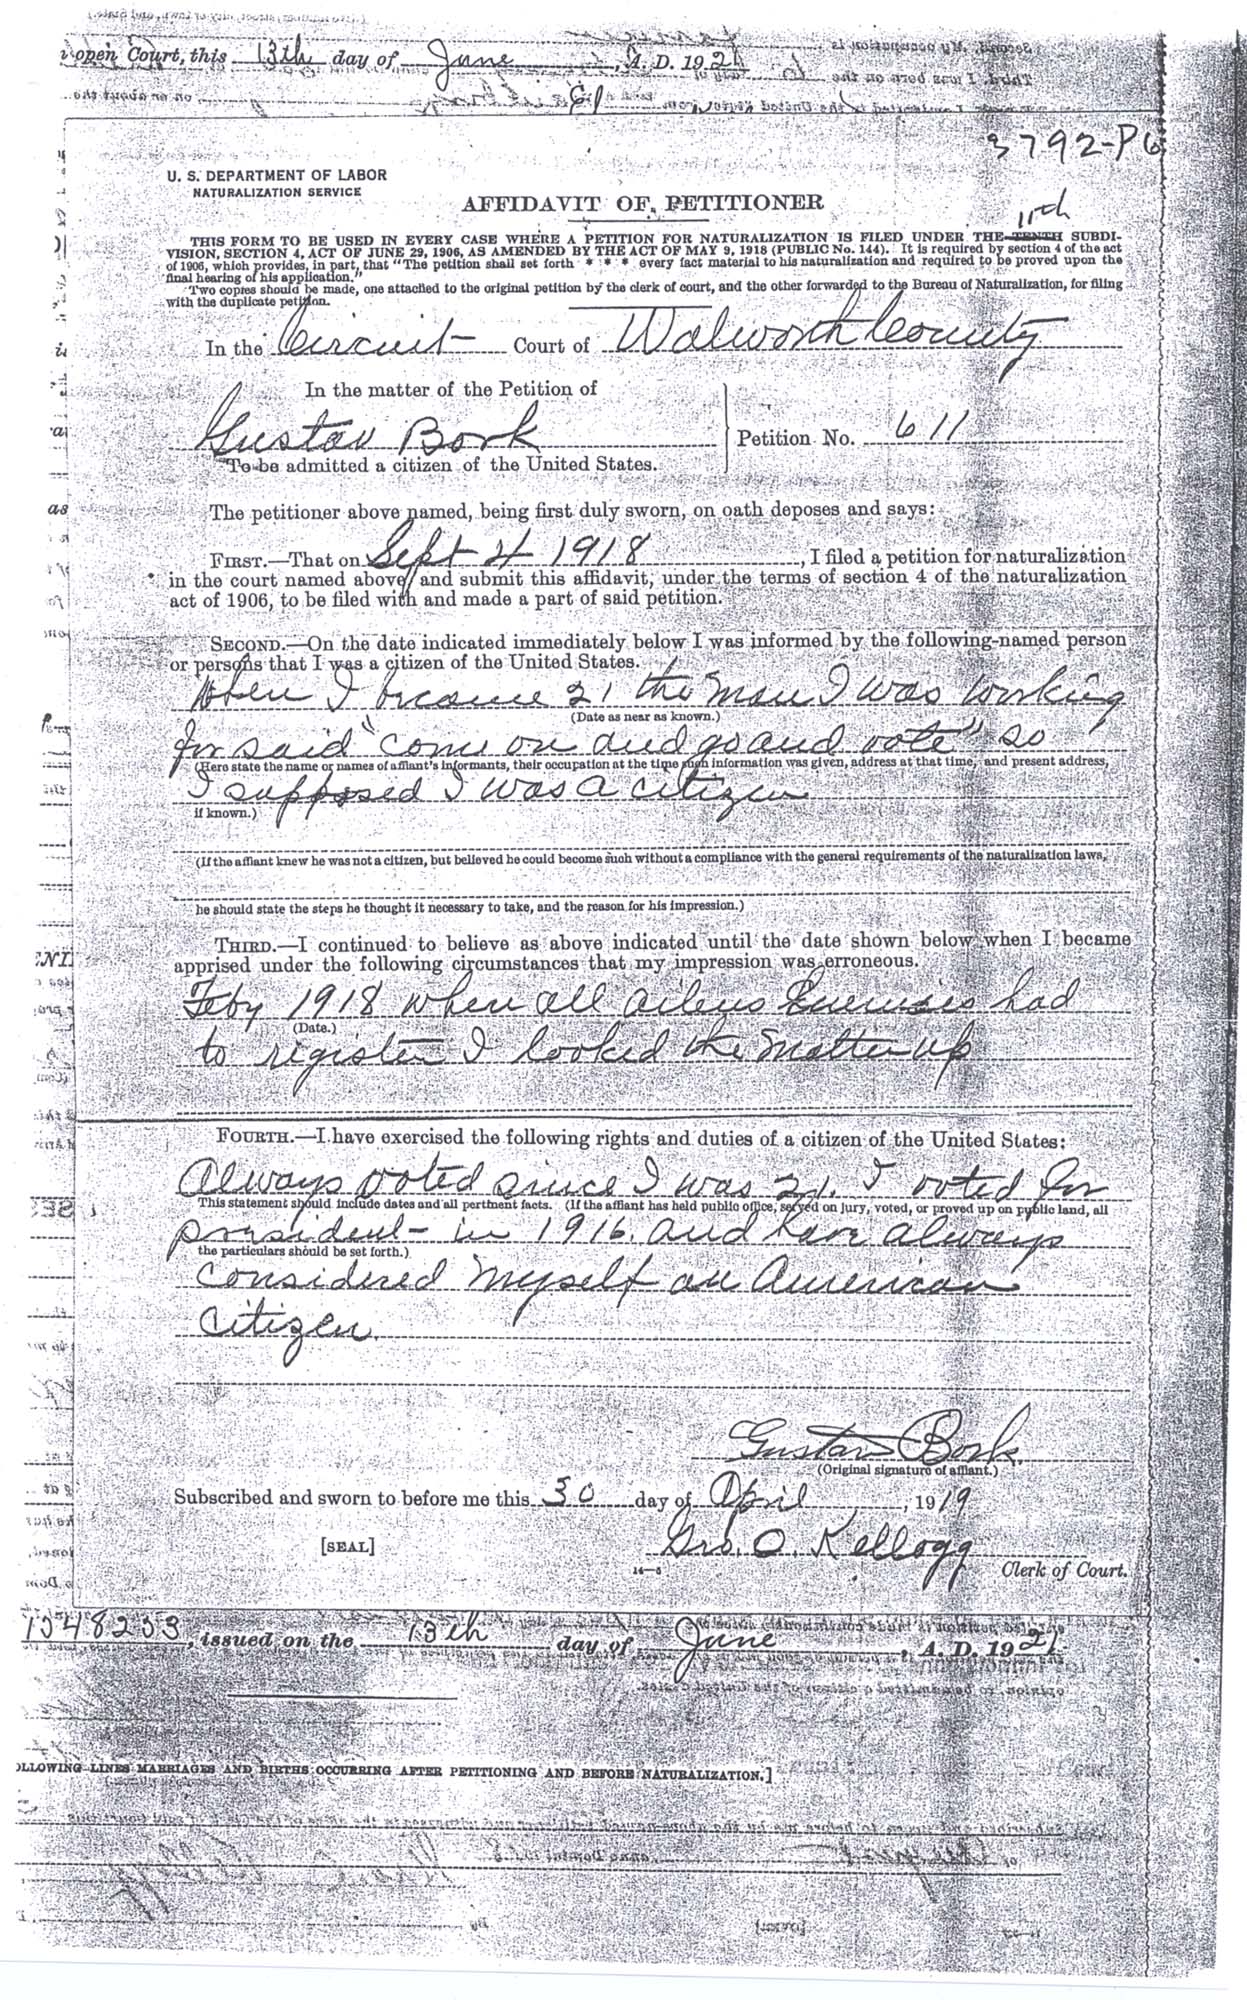 open Court, this 13th day of June, A. D. 1921
3792-P6
U. S. DEPARTMENT OF LABOR
NATURALIZATION SERVICE
AFFIDAVIT OF PETITIONER
11th
THIS FORM TO BE USED IN EVERY CASE WHERE A PETITION FOR NATURALIZATION IS FILED UNDER THE TENTH SUBDI-
VISION, SECTION 4, ACT OF JUNE 29, 1906, AS AMENDED BY THE ACT OF MAY 9, 1918 (PUBLIC No. 144). It is required by section 4 of the act
of 1906, which provides, in part, that "The petition shall set forth * * * every fact material to his naturalization and required to be proved upon the
final hearing of his application."
Two copies should be made, one attached to the original petition by the clerk of court, and the other forwarded to the Bureau of Naturalization, for filing
with the duplicate petition.
In the Circuit Court of Walworth County
In the matter of the Petition of
Gustav Bork
Petition No. 611
To be admitted a citizen of the United States.
The petitioner above named, being first duly sworn, on oath deposes and says:
FIRST.—That on Sept 4 1918, I filed a petition for naturalization
in the court named above, and submit this affidavit, under the terms of section 4 of the naturalization
act of 1906, to be filed with and made a part of said petition.
SECOND.—On the date indicated immediately below I was informed by the following-named person
or persons that I was a citizen of the United States.
When I became 21 the man I was working
(Date as near as known.)
for said "come on and go and vote" so
(Here state the name or names of affiant's informants, their occupation at the time such information was given, address at that time, and present address,
I supposed I was a citizen
if known.)
(If the affiant knew he was not a citizen, but believed he could become such without a compliance with the general requirements of the naturalization laws,
he should state the steps he thought it necessary to take, and the reason for his impression.)
THIRD.—I continued to believe as above indicated until the date shown below when I became
apprised under the following circumstances that my impression was erroneous.
Feby 1918 when all ailens Enemies had
(Date.)
to register I looked the matter up
FOURTH.—I have exercised the following rights and duties of a citizen of the United States:
Always voted since I was 21. I voted for
This statement should include dates and all pertinent facts. (If the affiant has held public office, served on jury, voted, or proved up on public land, all
president in 1916 and have always
the particulars should be set forth.)
considered myself an American
citizen.
Gustav Bork
(Original signature of affiant.)
Subscribed and sworn to before me this 30 day of April, 1919
[SEAL]
Geo. O. Kellogg
14—5
Clerk of Court.
issued on the 13th day of June, A. D. 1921
OLLOWING LINES MARRIAGES AND BIRTHS OCCURRING AFTER PETITIONING AND BEFORE NATURALIZATION.]